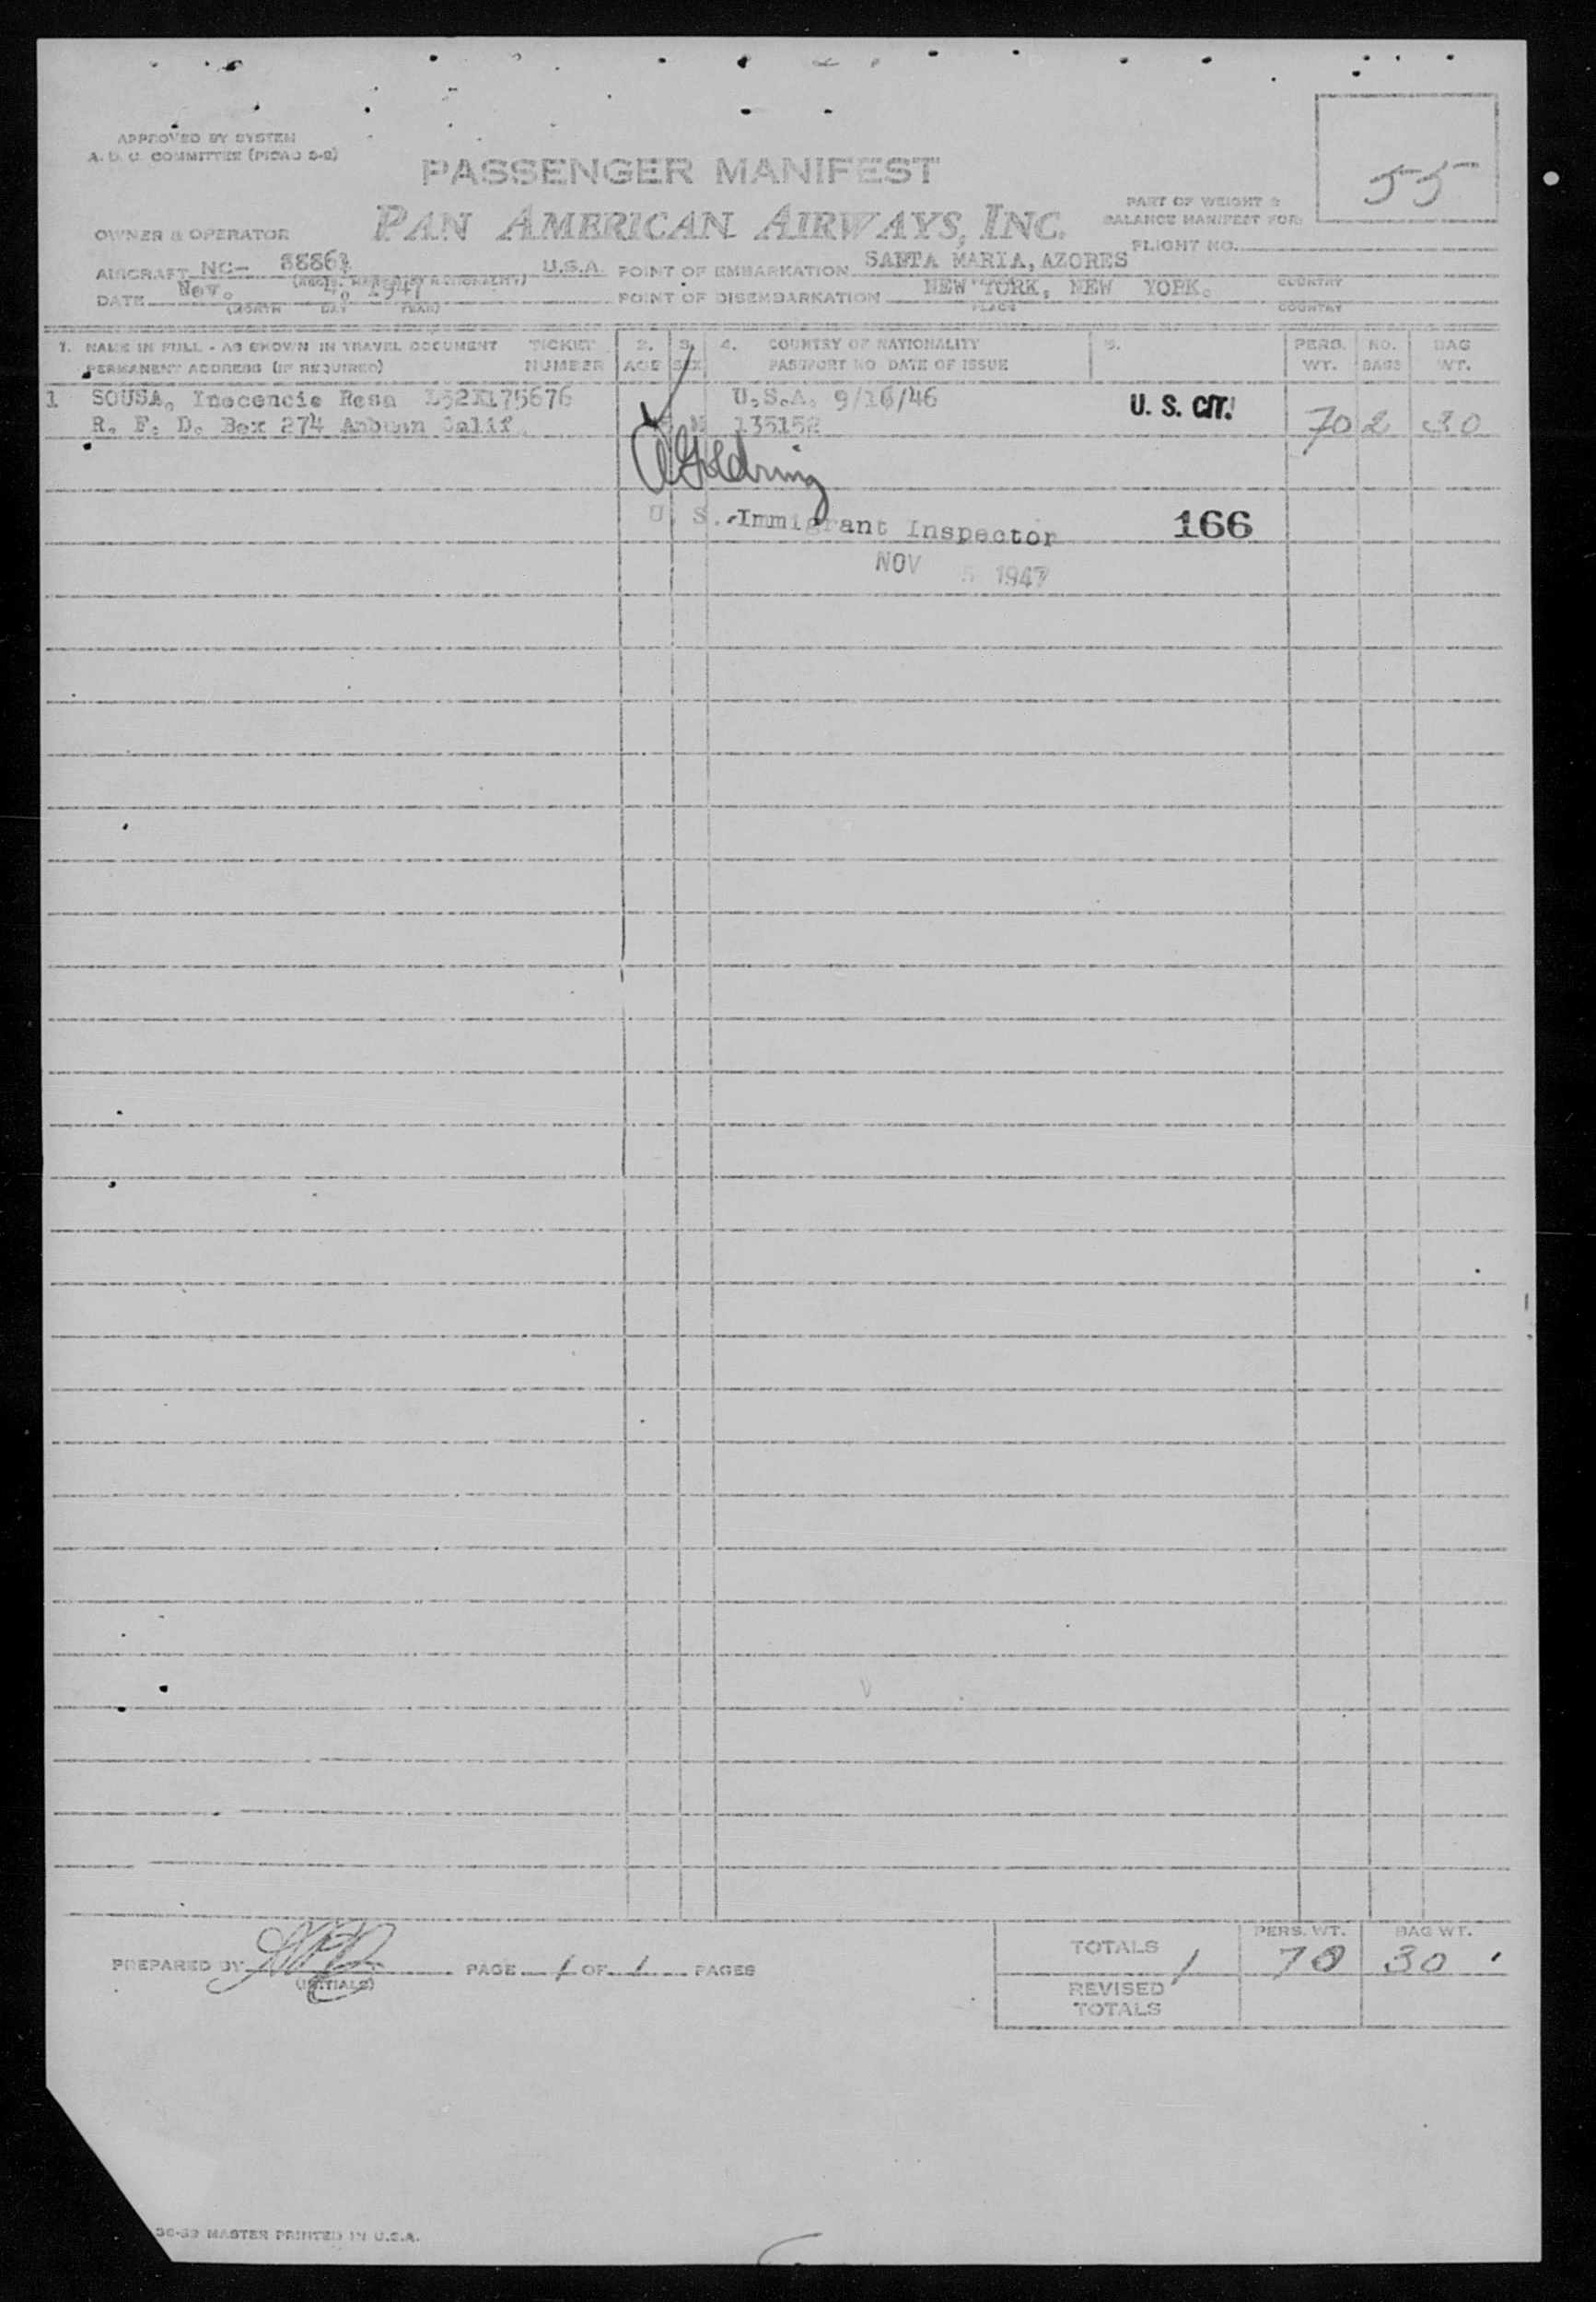 APPROVED BY SYSTEM
A. D. C. COMMITTEE (PICAO 5-2)
55
PASSENGER MANIFEST
PAN AMERICAN AIRWAYS, INC.
PART OF WEIGHT &
BALANCE MANIFEST FOR:
FLIGHT NO.
OWNER & OPERATOR
AIRCRAFT NC- U.S.A. POINT OF EMBARKATION SANTA MARIA, AZORES
COUNTRY
DATE Nov. 1947 POINT OF DISEMBARKATION NEW YORK, NEW YORK.
(MONTH DAY YEAR) PLACE COUNTRY
1. NAME IN FULL - AS SHOWN IN TRAVEL DOCUMENT TICKET 2. 3. 4. COUNTRY OF NATIONALITY 5. PERS. NO. BAG
PERMANENT ADDRESS (IF REQUIRED) NUMBER AGE SEX PASSPORT NO DATE OF ISSUE WT. BAGS WT.
1 SOUSA, Inocencio Rosa 175676 U.S.A. 9/16/46 U. S. CIT.
R. F. D. Box 274 Calif. M 135152 70 2 30
U. S. Immigrant Inspector 166
NOV 5 1947
PREPARED BY PAGE 1 OF 1 PAGES
(INITIALS)
PERS. WT. BAG WT.
TOTALS 1 70 30
REVISED
TOTALS
MASTER PRINTED IN U.S.A.